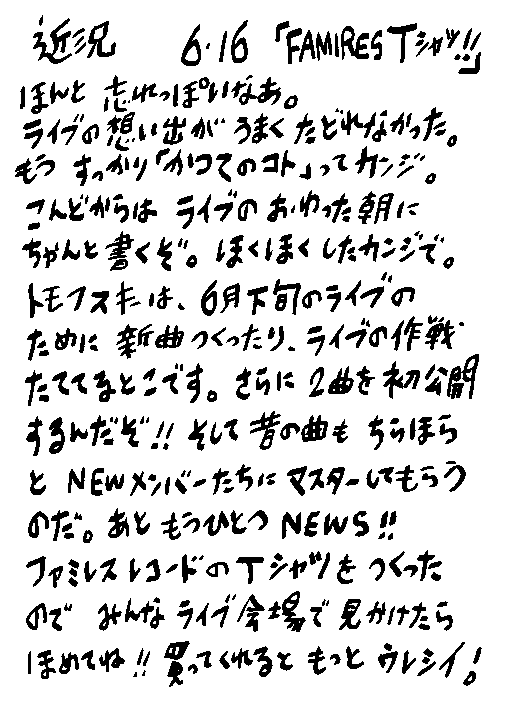 近況 6・16 「FAMIRES Tシャツ!!」
ほんと 忘れっぽいなあ。
ライブの想い出が うまく たどれなかった。
もう すっかり「かつてのコト」ってカンジ。
こんどからは ライブの おわった朝に
ちゃんと書くぞ。ほくほく したカンジで。
トモフスキーは、6月下旬のライブの
ために 新曲つくったり、ライブの作戦
たててるとこです。さらに 2曲を初公開
するんだぞ!! そして 昔の曲も ちらほら
と NEWメンバーたちに マスターしてもらう
のだ。あと もうひとつ NEWS!!
ファミレスレコードの Tシャツを つくった
ので みんな ライブ会場で 見かけたら
ほめてね!! 買ってくれると もっと ウレシイ!